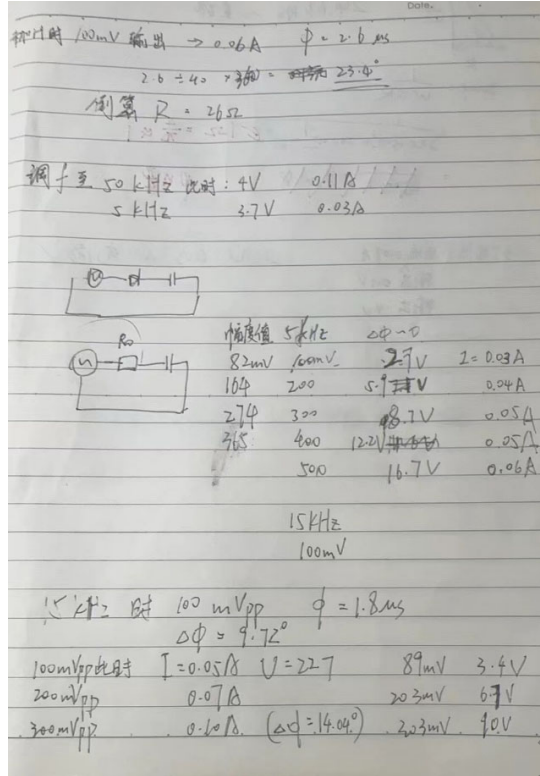 Date.
时 100mV 输出 → 0.06A φ = 2.6 us
2.6 ÷ 40 × 360 = 23.4°
倒算 R = 26Ω
调f至 50 kHz 此时: 4V 0.11A
5 kHz 3.7V 0.03A
R₀
幅度值 5kHz
82mV 100mV 2.9V I = 0.03A
164 200 5.9 V 0.04A
274 300 8.7V 0.05A
365 400 12.2V 0.05A
500 16.7V 0.06A
15kHz
100mV
15kHz 时 100 mVpp φ = 1.8us
Δφ = 9.72°
100mVpp此时 I = 0.05A U = 22.7 89mV 3.4V
200mVpp 0.07A 203mV 6.7V
300mVpp 0.10A (Δφ = 14.04°) 303mV 10V